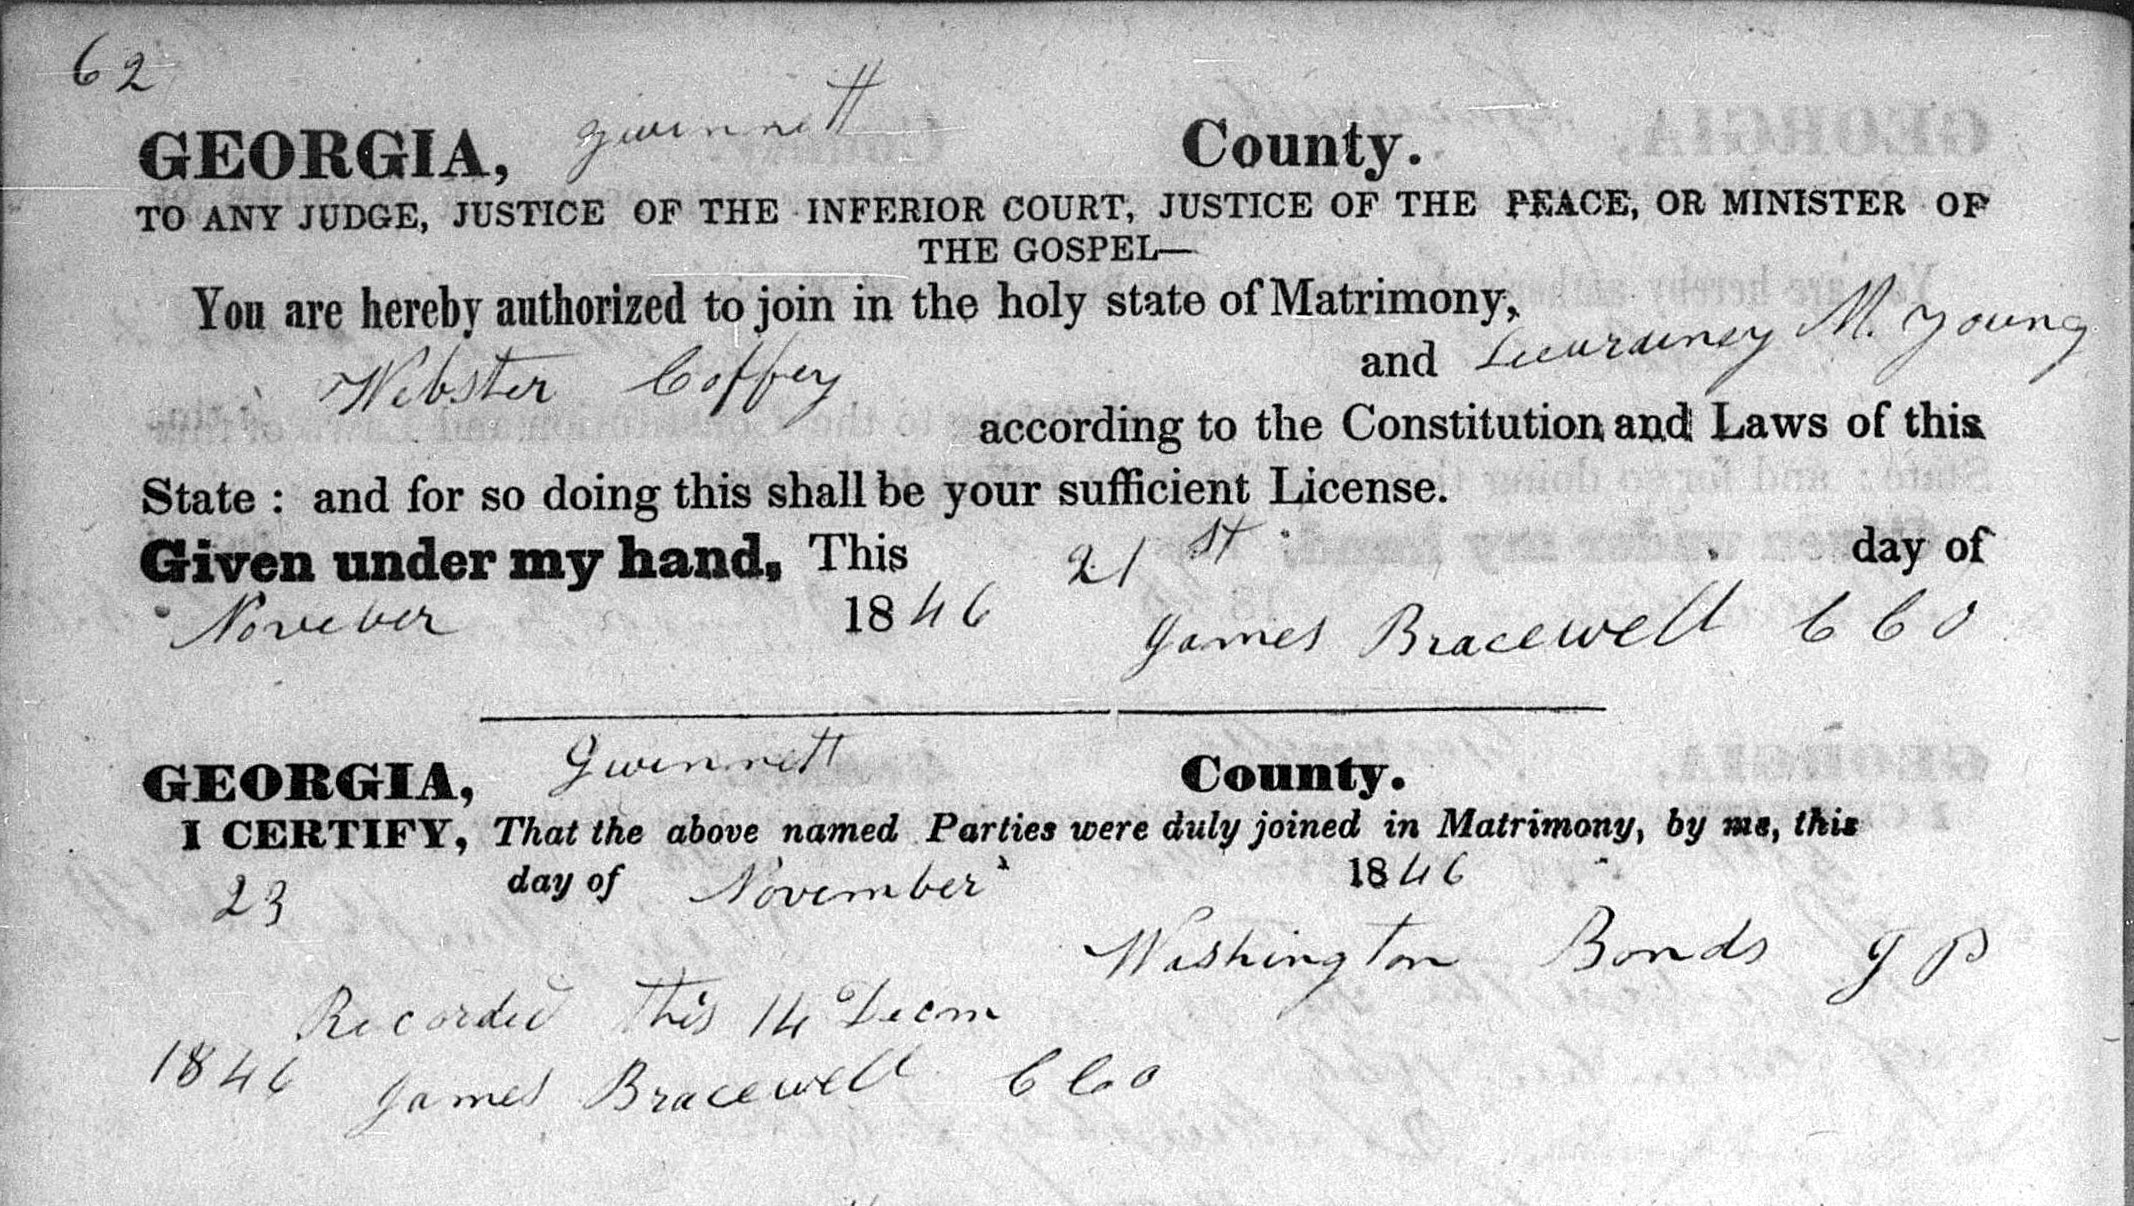 62
GEORGIA, Gwinnett County.
TO ANY JUDGE, JUSTICE OF THE INFERIOR COURT, JUSTICE OF THE PEACE, OR MINISTER OF
THE GOSPEL—
You are hereby authorized to join in the holy state of Matrimony,
Webster Coffey and M. Young
according to the Constitution and Laws of this
State : and for so doing this shall be your sufficient License.
Given under my hand, This 21st day of
Noveber 1846 James Bracewell C C O
GEORGIA, Gwinnett County.
I CERTIFY, That the above named Parties were duly joined in Matrimony, by me, this
23 day of November 1846
Washington Bonds J P
Recorded this 14 Decm
1846 James Bracewell C C O